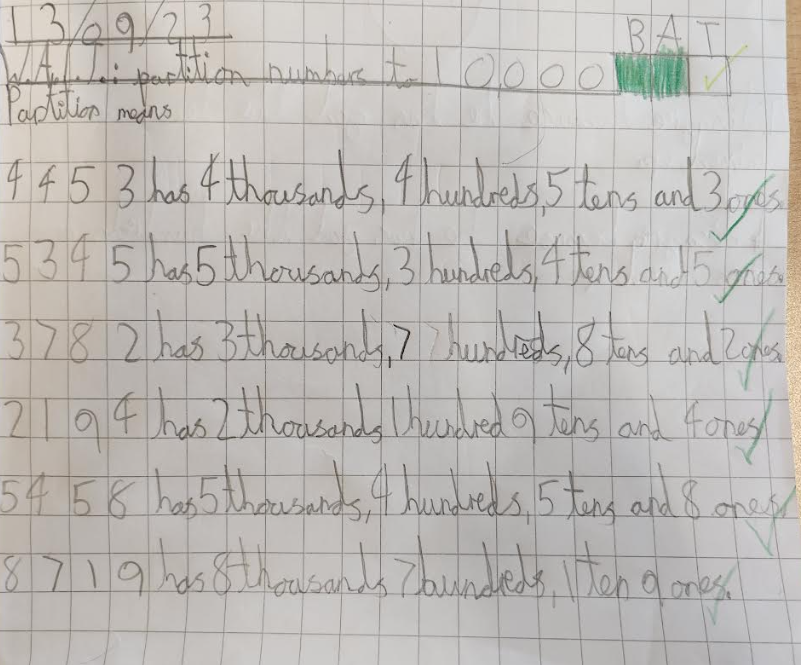 13/09/23
B A T
W.A.L.T.: partition numbers to 10000
Partition means
4453 has 4 thousands, 4 hundreds, 5 tens and 3 ones.
5345 has 5 thousands, 3 hundreds, 4 tens and 5 ones.
3782 has 3 thousands, 7 hundreds, 8 tens and 2 ones.
2194 has 2 thousands 1 hundred 9 tens and 4 ones
5458 has 5 thousands, 4 hundreds, 5 tens and 8 ones
8719 has 8 thousands 7 hundreds, 1 ten 9 ones.